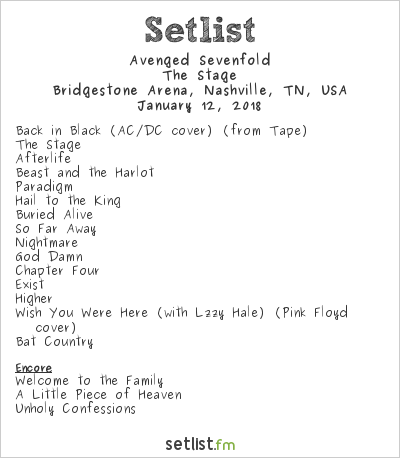 Setlist
Avenged Sevenfold
The Stage
Bridgestone Arena, Nashville, TN, USA
January 12, 2018
Back in Black (AC/DC cover) (from Tape)
The Stage
Afterlife
Beast and the Harlot
Paradigm
Hail to the King
Buried Alive
So Far Away
Nightmare
God Damn
Chapter Four
Exist
Higher
Wish You Were Here (with Lzzy Hale) (Pink Floyd
cover)
Bat Country
Encore
Welcome to the Family
A Little Piece of Heaven
Unholy Confessions
setlist.fm